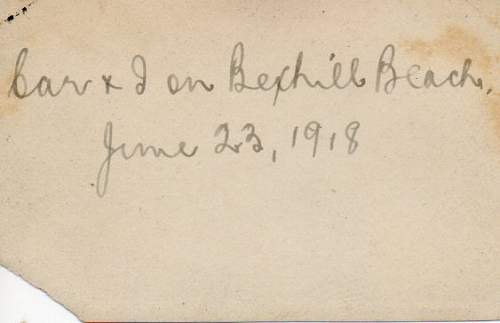 Car & I on Bexhill Beach,
June 23, 1918